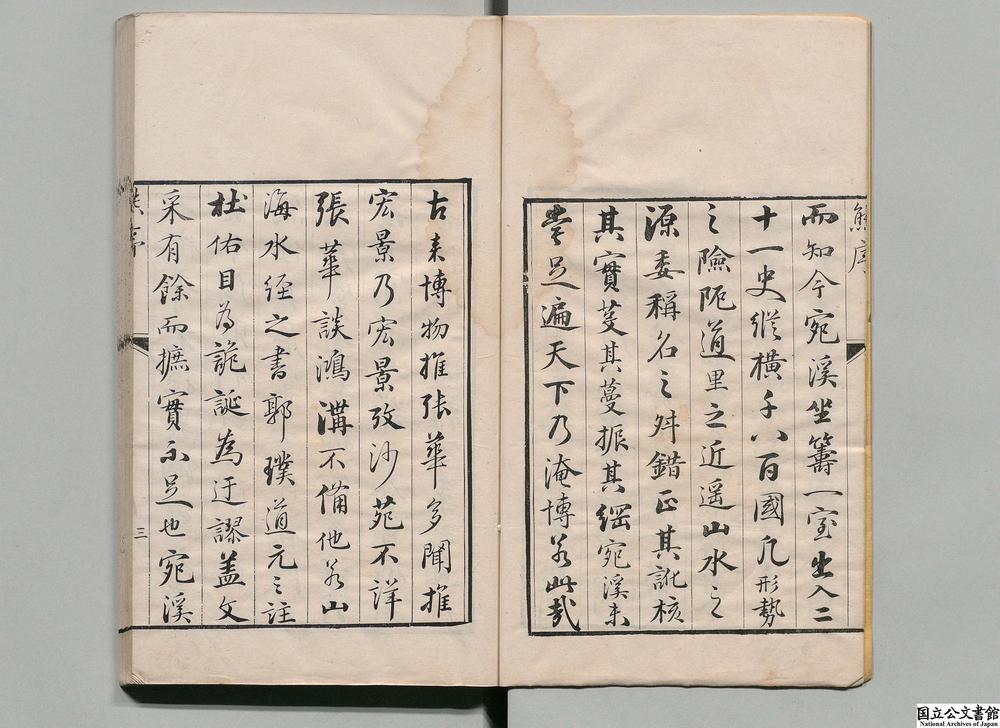 熊序
而知今宛溪坐籌一室出入二
十一史縱橫千八百國凡形勢
之險阨道里之近遥山水之
源委稱名之舛錯正其訛核
其實芟其蔓振其綱宛溪未
嘗足遍天下乃淹博若此哉
古来博物推張華多聞推
宏景乃宏景攷沙苑不詳
張華談鴻溝不備他若山
海水經之書郭璞道元之註
杜佑目為詭誕為迂謬盖文
采有餘而摭實不足也宛溪
熊序
三
国立公文書館
National Archives of Japan